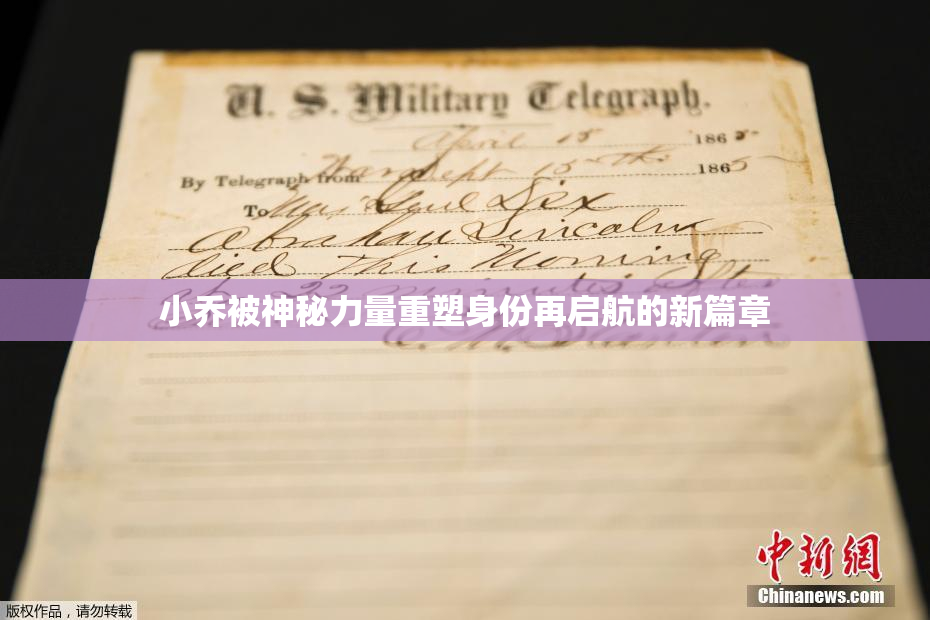 U. S. Military Telegraph.
April 15 1865
By Telegraph from War Dept 15th 1865
To Maj Genl Dix
Abraham Lincoln
died This Morning
at 22 minutes after
小乔被神秘力量重塑身份再启航的新篇章
E. M. Stanton
中新网
Chinanews.com
版权作品，请勿转载